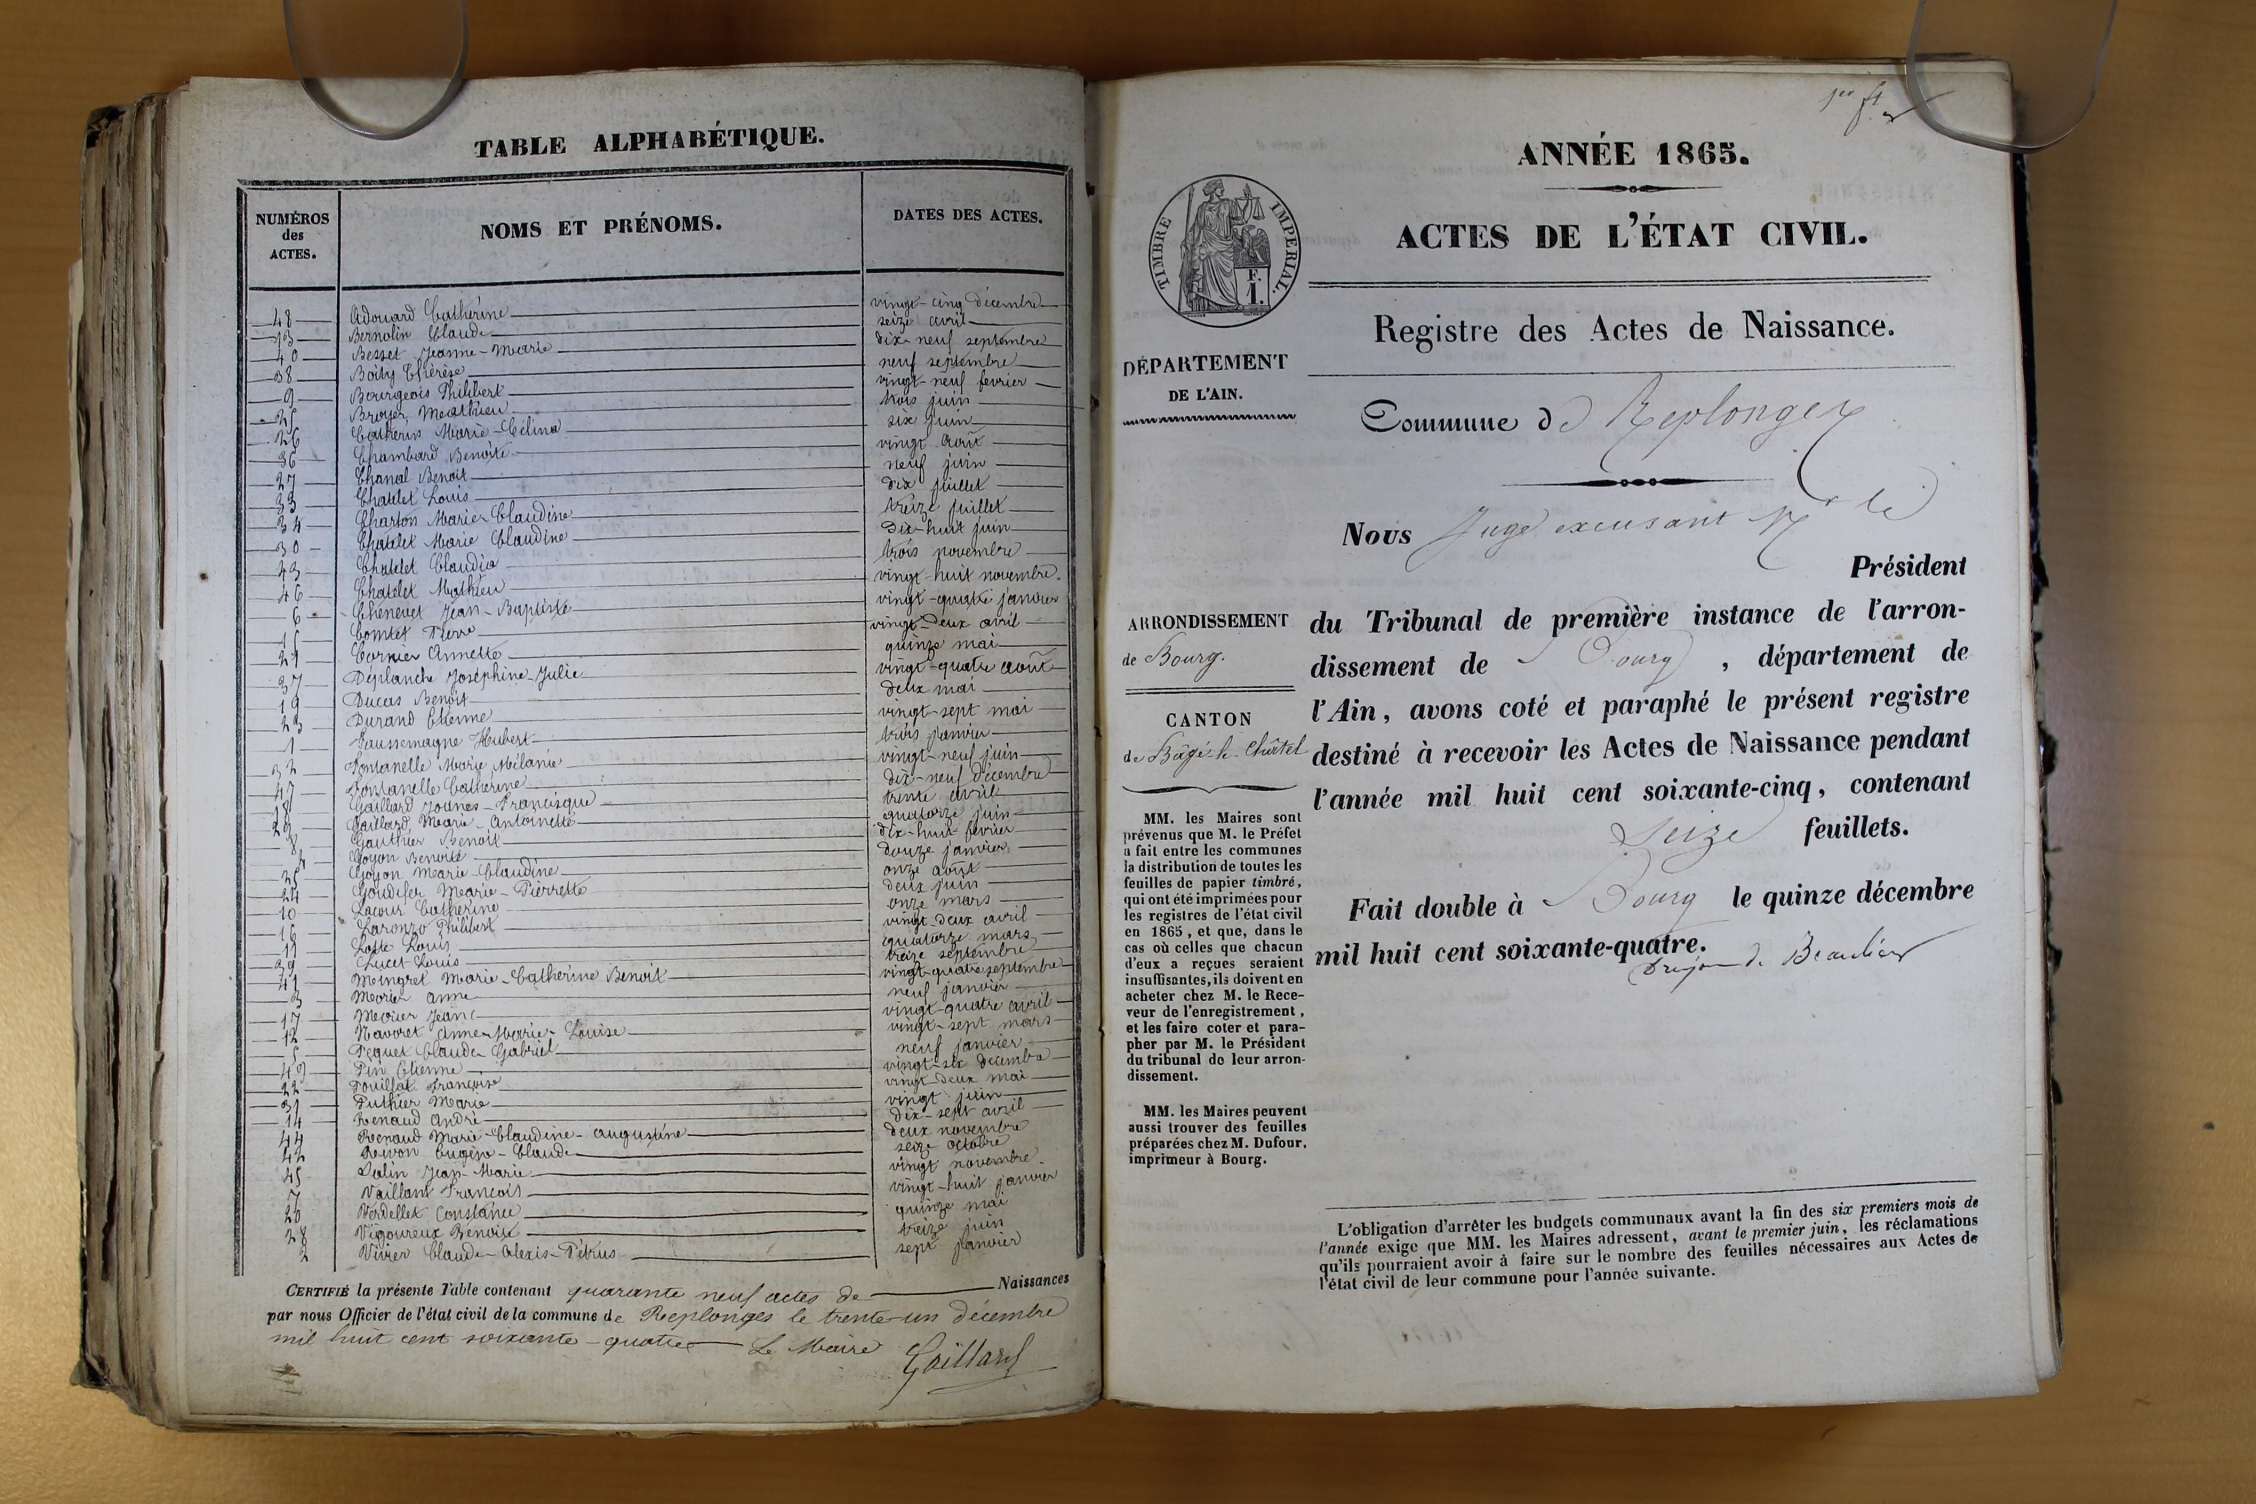 TABLE ALPHABÉTIQUE.
NUMÉROS des ACTES. NOMS ET PRÉNOMS. DATES DES ACTES.
48 Adouard Catherine vingt-cinq décembre
13 Bernolin Claude seize avril
40 Besset Jeanne-Marie dix-neuf septembre
38 Boity Thérèse neuf septembre
9 Bourgeois Philibert vingt-neuf fevrier
25 Broyer Mathieu trois juin
26 Catherin Marie-Célina six juin
36 Chambard Benoite vingt août
27 Chanal Benoit neuf juin
33 Chatelet Louis dix juillet
34 Charton Marie-Claudine treize juillet
30 Chatelet Marie Claudine dix-huit juin
43 Chatelet Claudia trois novembre
46 Chatelet Mathieu vingt-huit novembre.
6 Chenevet Jean-Baptiste vingt-quatre janvier
15 Comtet Pierre vingt-deux avril
21 Cornier Annette quinze mai
37 Déplanche Joséphine-Julie vingt-quatre août
19 Ducas Benoit deux mai
23 Durand Etienne vingt-sept mai
1 Faussemagne Hubert trois janvier
32 Fontanelle Marie Mélanie vingt-neuf juin
47 Fontanelle Catherine dix-neuf décembre
18 Gaillard Francisque trente avril
29 Gaillard Marie-Antoinette quatorze juin
8 Gauthier Benoit dix-huit février
4 Goyon Benoite douze janvier
35 Goyon Marie-Claudine onze août
24 Marie-Pierrette deux juin
10 Lacour Catherine onze mars
16 Laronzo Philibert vingt-deux avril
11 Louis quatorze mars
39 Lucet Louis treize septembre
41 Meingret Marie-Catherine Benoit vingt-quatre septembre
3 Morier Anne neuf janvier
17 Morier Jean vingt-quatre avril
12 Navoret Anne-Marie-Louise vingt-sept mars
5 Pequet Claude Gabriel neuf janvier
49 Pin Etienne vingt-six décembre
22 Pouillat Françoise vingt-deux mai
31 Puthier Marie vingt juin
14 Renaud André dix-sept avril
44 Renaud Marie-Claudine-Augustine deux novembre
42 Revon Eugène-Claude seize octobre
45 Salin Jean-Marie vingt novembre
7 Vaillant François vingt-huit janvier
20 Verdellet Constance quinze mai
28 Vigoureux Benoite treize juin
2 Vivier Claude-Alexis-Pétrus sept janvier
CERTIFIÉ la présente Table contenant quarante neuf actes de Naissances
par nous Officier de l'état civil de la commune de Replonges le trente-un décembre
mil huit cent soixante-quatre Le Maire
Gaillard
1er ft.
ANNÉE 1865.
ACTES DE L'ÉTAT CIVIL.
TIMBRE IMPERIAL.
F. 1.
Registre des Actes de Naissance.
DÉPARTEMENT
DE L'AIN.
Commune de Replonges
Nous Juge excusant Mr le
Président
du Tribunal de première instance de l'arron-
dissement de Bourg, département de
l'Ain, avons coté et paraphé le présent registre
destiné à recevoir les Actes de Naissance pendant
l'année mil huit cent soixante-cinq, contenant
Seize feuillets.
Fait double à Bourg le quinze décembre
mil huit cent soixante-quatre.
de Beaulieu
ARRONDISSEMENT
de Bourg.
CANTON
de Bâgé-le-Châtel
MM. les Maires sont
prévenus que M. le Préfet
a fait entre les communes
la distribution de toutes les
feuilles de papier timbré,
qui ont été imprimées pour
les registres de l'état civil
en 1865, et que, dans le
cas où celles que chacun
d'eux a reçues seraient
insuffisantes, ils doivent en
acheter chez M. le Rece-
veur de l'enregistrement,
et les faire coter et para-
pher par M. le Président
du tribunal de leur arron-
dissement.
MM. les Maires peuvent
aussi trouver des feuilles
préparées chez M. Dufour,
imprimeur à Bourg.
L'obligation d'arrêter les budgets communaux avant la fin des six premiers mois de
l'année exige que MM. les Maires adressent, avant le premier juin, les réclamations
qu'ils pourraient avoir à faire sur le nombre des feuilles nécessaires aux Actes de
l'état civil de leur commune pour l'année suivante.